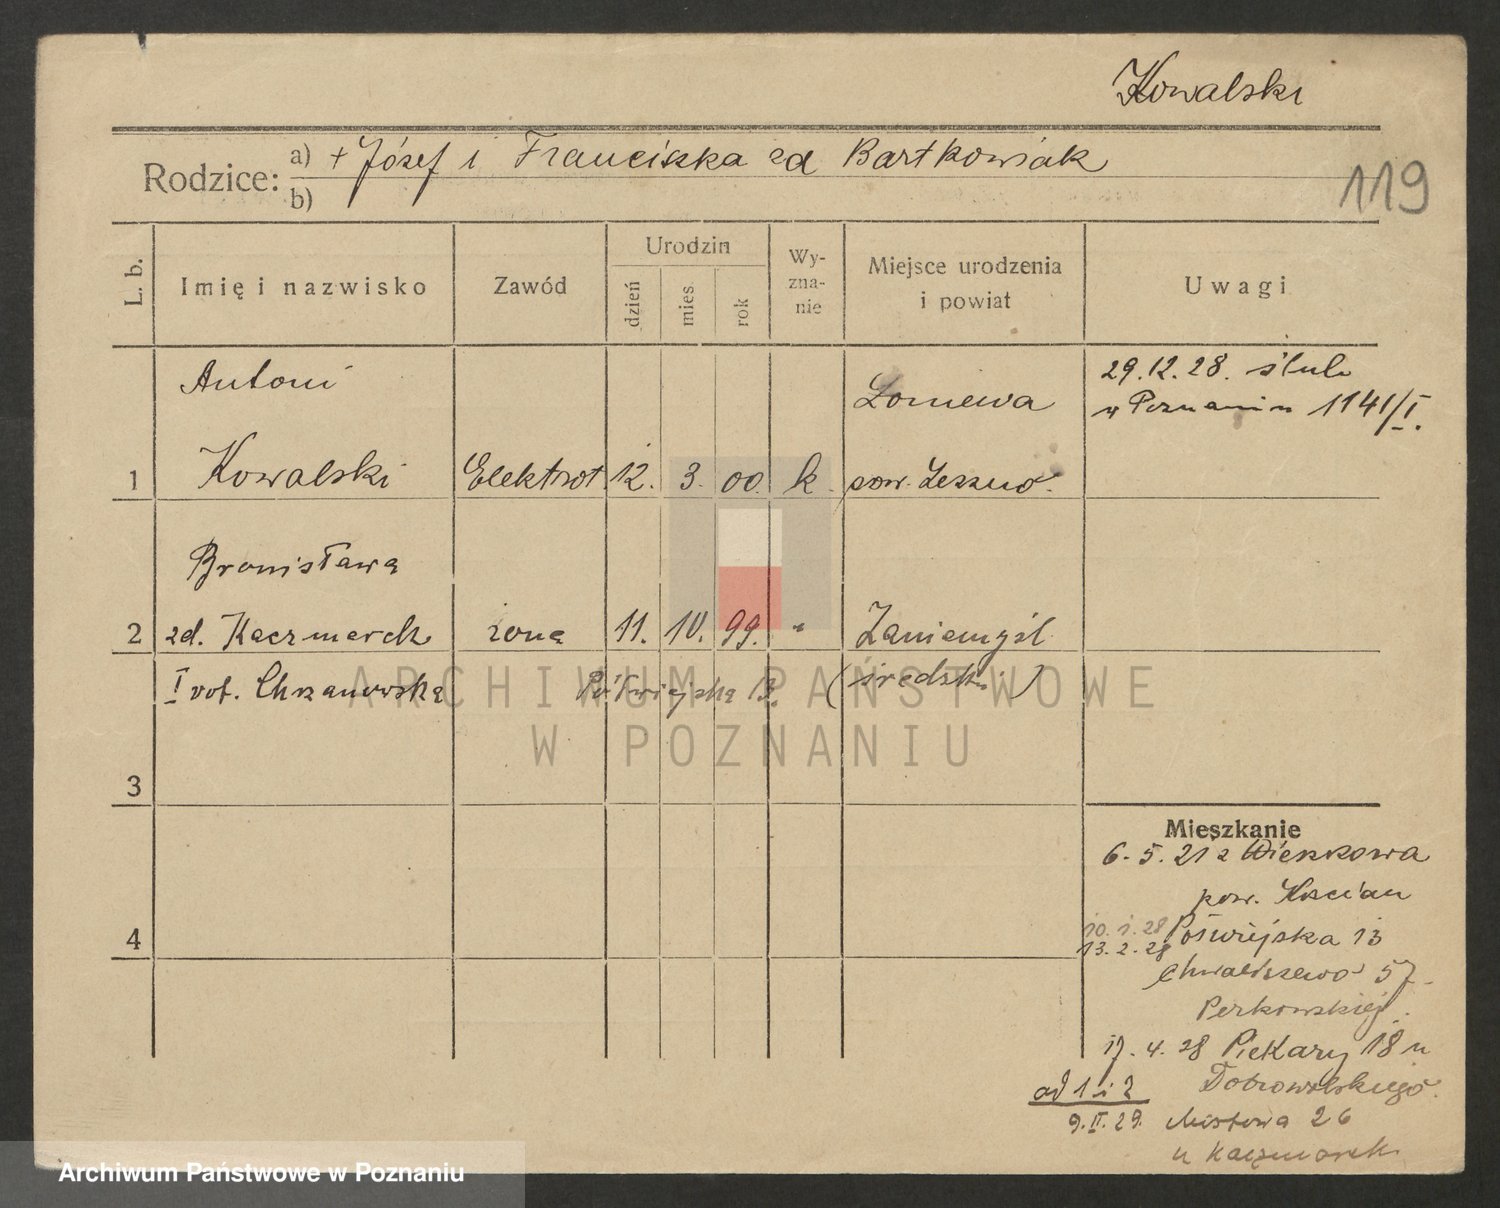 Kowalski
Rodzice: a) + Józef i Franciszka zd Bartkowiak
b)
119
L. b. Imię i nazwisko Zawód Urodzin dzień mies. rok Wy-zna-nie Miejsce urodzenia i powiat Uwagi
Antoni Łoniewa 29.12.28. ślub
w Poznaniu 1141/I.
1 Kowalski Elektrot. 12. 3. 00. k. pow. Leszno.
Bronisława
2 zd. Kaczmarek żona 11. 10. 99. " Zaniemyśl
I vot. Chrzanowska Półwiejska 13. (średzki)
ARCHIWUM PAŃSTWOWE
W POZNANIU
3
Mieszkanie
6.5.21 z
pow. Kościan
4
10.1.28 Półwiejska 13
13.2.28
Chwaliszewo 57
Perkowskiej.
17.4.28 Piekary 18 u
Dobrowolskiego.
ad 1 i 2
9.II.29. Mostowa 26
u Kaczmarek
Archiwum Państwowe w Poznaniu